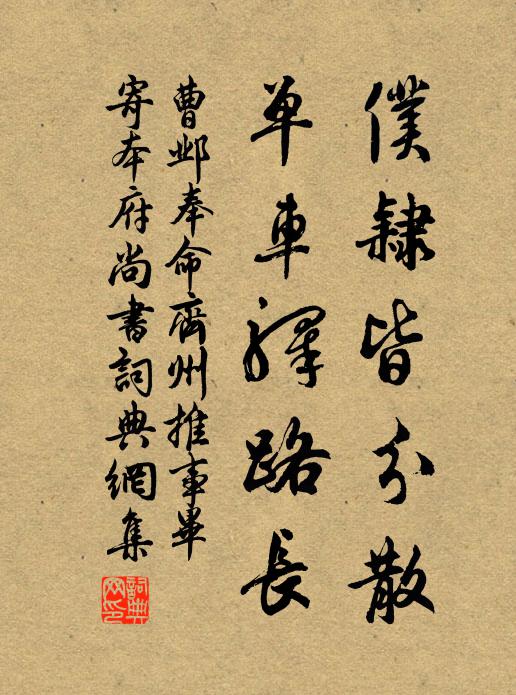 僕隸皆分散
單車驛路長
曹鄴奉命齊州推事畢
寄本府尚書詞典網集
詞典网印